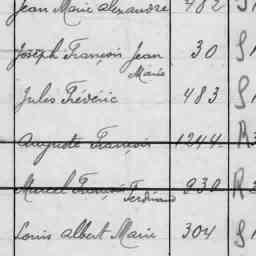 Jean Marie Alexandre 482 S 1
Joseph François Jean Marie 30 S 1
Jules Frédéric 483 S 1
Auguste François 1244 R 3
Marcel François Ferdinand 930 R 3
Louis Albert Marie 304 S 1